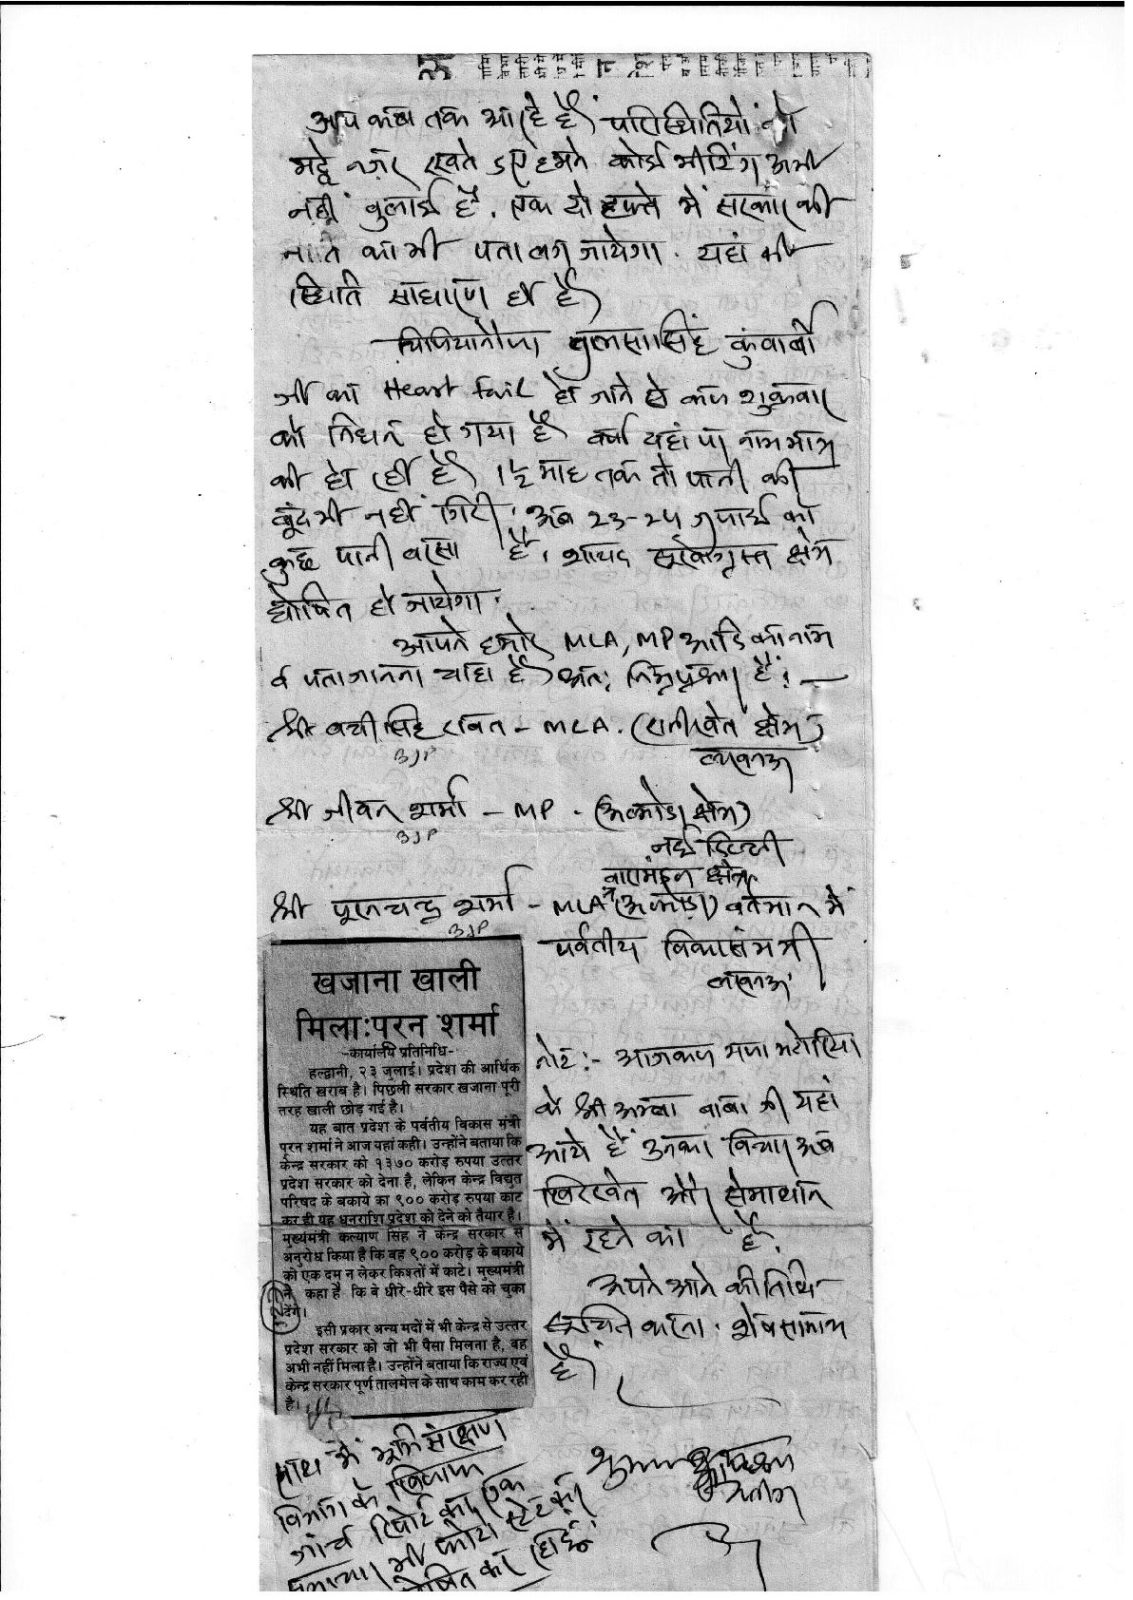 आप कब तक आ रहे हैं परिस्थितियों को
मद्दे नज़र रखते हुए हमने कोई मीटिंग अभी
नहीं बुलाई है. एक दो हफ्ते में सरकार की
का भी पता लग जायेगा. यहां की
स्थिति साधारण ही है
सिंह कुंवार्बी
जी का Heart fail हो जाने से कल शुक्रवार
को निधन हो गया है वर्षा यहां पर नाममात्र
की हो रही है 1½ माह तक तो पानी की
बूंद भी नहीं गिरी. अब 23-24 जुलाई को
कुछ पानी बरसा है. शायद सूखाग्रस्त क्षेत्र
घोषित हो जायेगा.
आपने हमारे MLA, MP आदि का नाम
व पता जानना चाहा है अतः निम्नप्रकार हैं: —
श्री बची सिंह रावत - MLA. (रानीखेत क्षेत्र)
BJP
लखनऊ
श्री जीवन शर्मा - MP - (अल्मोडा क्षेत्र)
BJP
नई दिल्ली
बारामंडल क्षेत्र
श्री पूरनचन्द्र शर्मा - MLA (अल्मोड़ा) वर्तमान में
BJP
पर्वतीय विकास मंत्री
लखनऊ
खजाना खाली
मिला:पूरन शर्मा
-कार्यालय प्रतिनिधि-
हल्द्वानी, २३ जुलाई। प्रदेश की आर्थिक
स्थिति खराब है। पिछली सरकार खजाना पूरी
तरह खाली छोड़ गई है।
यह बात प्रदेश के पर्वतीय विकास मंत्री
पूरन शर्मा ने आज यहां कही। उन्होंने बताया कि
केन्द्र सरकार को १३७० करोड़ रुपया उत्तर
प्रदेश सरकार को देना है, लेकिन केन्द्र विद्युत
परिषद के बकाये का ९०० करोड़ रुपया काट
कर ही यह धनराशि प्रदेश को देने को तैयार है।
मुख्यमंत्री कल्याण सिंह ने केन्द्र सरकार से
अनुरोध किया है कि वह ९०० करोड़ के बकाये
को एक दम न लेकर किश्तों में काटे। मुख्यमंत्री
ने कहा है कि वे धीरे-धीरे इस पैसे को चुका
देंगे।
इसी प्रकार अन्य मदों में भी केन्द्र से उत्तर
प्रदेश सरकार को जो भी पैसा मिलता है, वह
अभी नहीं मिला है। उन्होंने बताया कि राज्य एवं
केन्द्र सरकार पूर्ण तालमेल के साथ काम कर रही
है।
नोट:- आजकल
के श्री बाबा जी यहां
आये हैं उनका विचार अब
खिरखेत और
में रहने का है.
अपने आने की तिथि
सूचित करना. शेष सामान्य
है।
साथ में भूमि संरक्षण
विभाग के खिलाफ
जांच रिपोर्ट का एक
भी फोटो स्टेट कर
प्रेषित कर रहा हूँ.